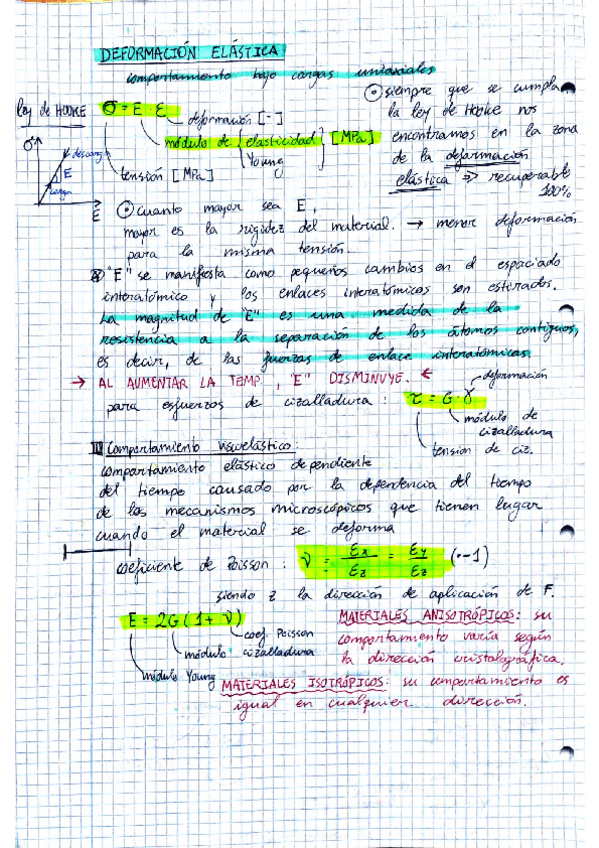 DEFORMACIÓN ELÁSTICA
comportamiento bajo cargas uniaxiales
ley de HOOKE
σ = E · ε
deformación [-]
módulo de { elasticidad / Young } [MPa]
tensión [MPa]
σ
descarga
E
carga
ε
⊙ siempre que se cumpla
la ley de Hooke nos
encontramos en la zona
de la deformación
elástica ⇒ recuperable
100%
⊙ cuanto mayor sea E,
mayor es la rigidez del material. → menor deformación
para la misma tensión.
"E" se manifiesta como pequeños cambios en el espaciado
interatómico y los enlaces interatómicos son estirados.
La magnitud de "E" es una medida de la
resistencia a la separación de los átomos contiguos,
es decir, de las fuerzas de enlace interatómicas.
→ AL AUMENTAR LA TEMP., "E" DISMINUYE. ←
para esfuerzos de cizalladura : τ = G · γ
deformación
módulo de
cizalladura
tensión de ciz.
Comportamiento viscoelástico:
comportamiento elástico dependiente
del tiempo causado por la dependencia del tiempo
de los mecanismos microscópicos que tienen lugar
cuando el material se deforma
coeficiente de Poisson : ν = εx / εz = εy / εz (·-1)
siendo z la dirección de aplicación de F.
E = 2G (1 + ν)
coef. Poisson
módulo cizalladura
módulo Young
MATERIALES ANISOTRÓPICOS: su
comportamiento varía según
la dirección cristalográfica.
MATERIALES ISOTRÓPICOS: su comportamiento es
igual en cualquier dirección.